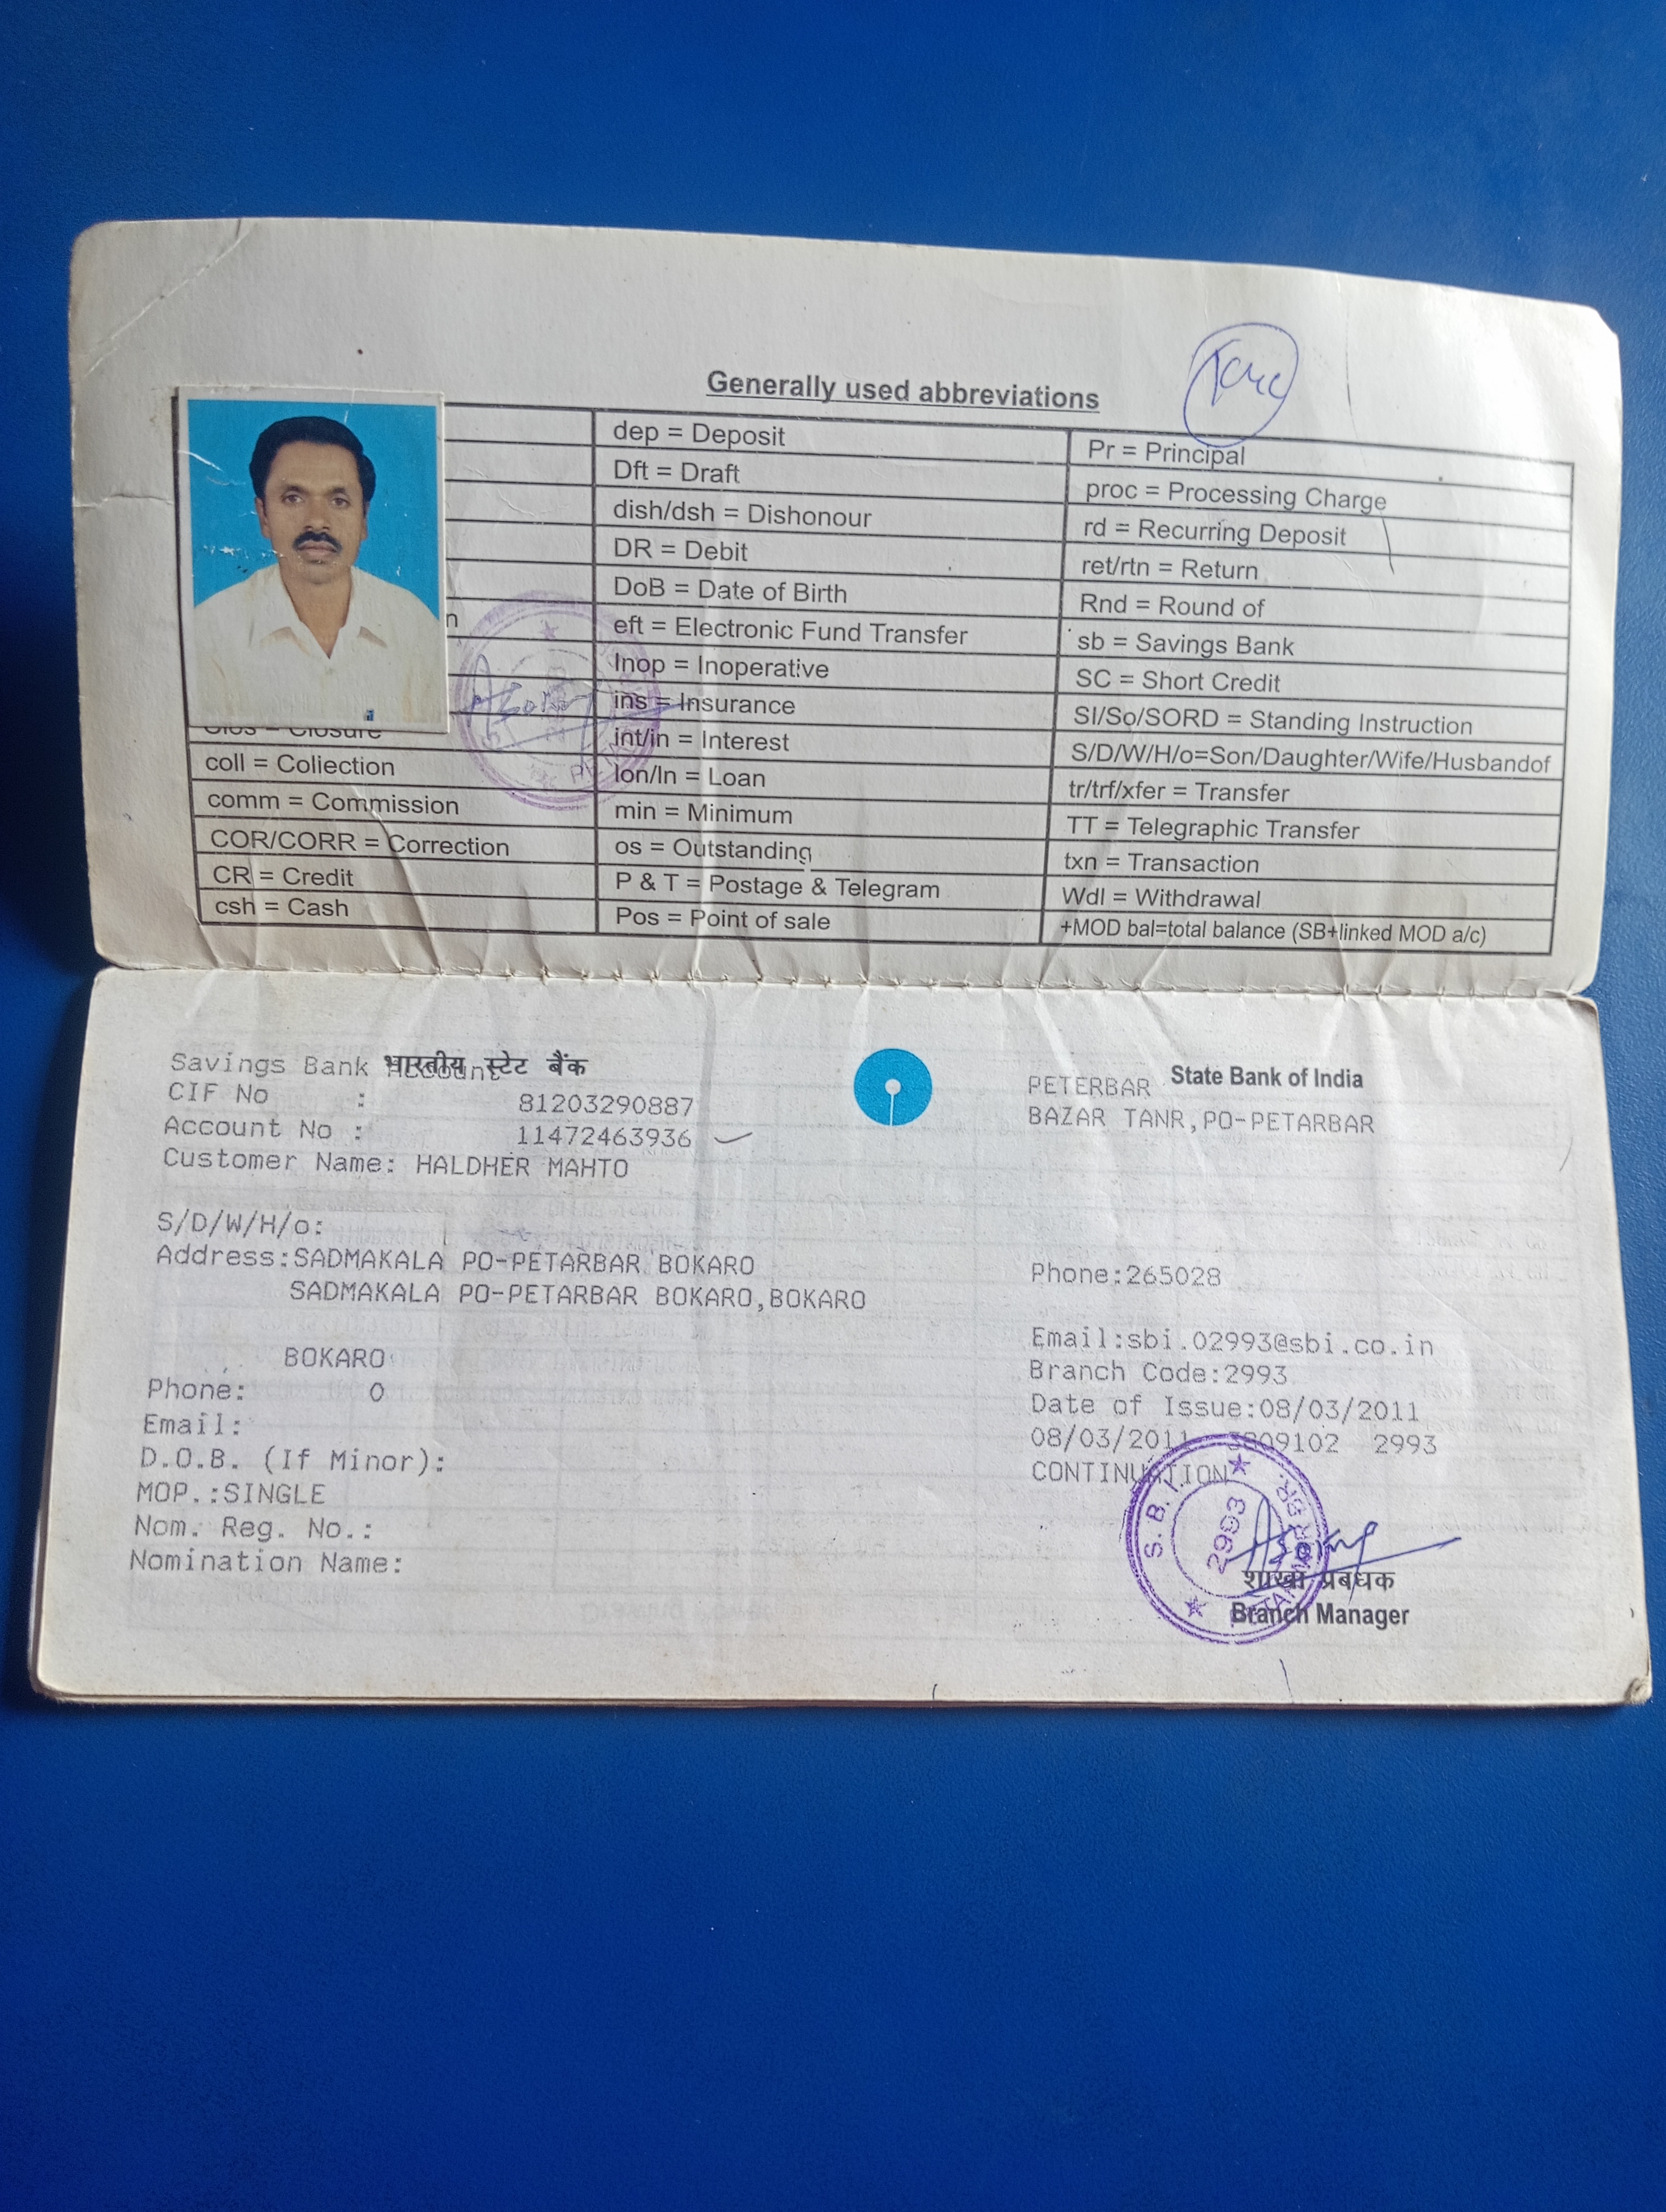 Generally used abbreviations
dep = Deposit
Dft = Draft
dish/dsh = Dishonour
DR = Debit
DoB = Date of Birth
eft = Electronic Fund Transfer
Inop = Inoperative
ins = Insurance
int/in = Interest
lon/ln = Loan
min = Minimum
os = Outstanding
P & T = Postage & Telegram
Pos = Point of sale
Pr = Principal
proc = Processing Charge
rd = Recurring Deposit
ret/rtn = Return
Rnd = Round of
sb = Savings Bank
SC = Short Credit
SI/So/SORD = Standing Instruction
S/D/W/H/o=Son/Daughter/Wife/Husbandof
tr/trf/xfer = Transfer
TT = Telegraphic Transfer
txn = Transaction
Wdl = Withdrawal
+MOD bal=total balance (SB+linked MOD a/c)
n
Clos = Closure
coll = Collection
comm = Commission
COR/CORR = Correction
CR = Credit
csh = Cash
भारतीय स्टेट बैंक
Savings Bank Account
CIF No : 81203290887
Account No : 11472463936
Customer Name: HALDHER MAHTO
S/D/W/H/o:
Address:SADMAKALA PO-PETARBAR BOKARO
SADMAKALA PO-PETARBAR BOKARO,BOKARO
BOKARO
Phone: 0
Email:
D.O.B. (If Minor):
MOP.:SINGLE
Nom. Reg. No.:
Nomination Name:
State Bank of India
PETERBAR
BAZAR TANR,PO-PETARBAR
Phone:265028
Email:sbi.02993@sbi.co.in
Branch Code:2993
Date of Issue:08/03/2011
08/03/2011 3809102 2993
CONTINUATION
S. B. I.
2993
शाखा प्रबंधक
Branch Manager